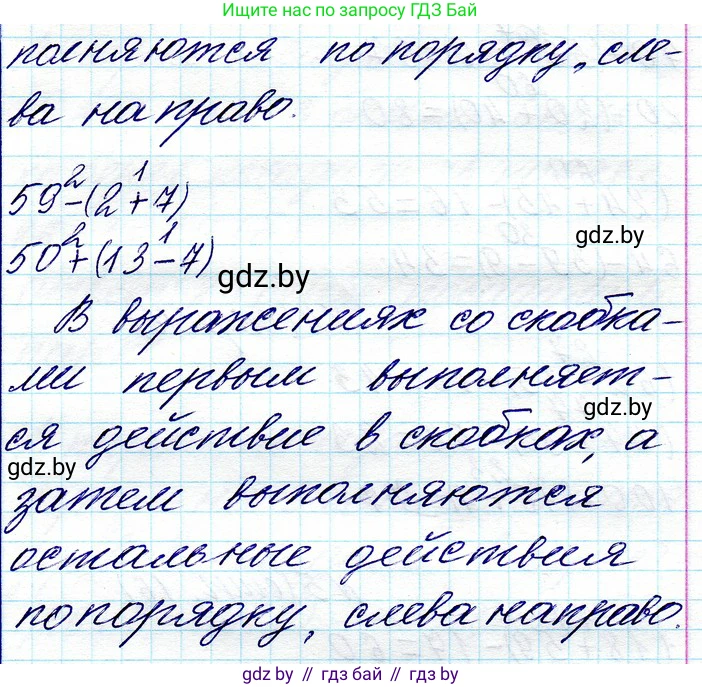 Ищите нас по запросу ГДЗ Бай
полняются по порядку, сле-
ва направо.
2 1
59-(2+7)
2 1
50+(13-7)
gdz.by
gdz.by
В выражениях со скобка-
ми первым выполняет-
gdz.by
ся действие в скобках, а
gdz.by
затем выполняются
остальные действия
по порядку, слева направо.
gdz.by // гдз бай // gdz.by